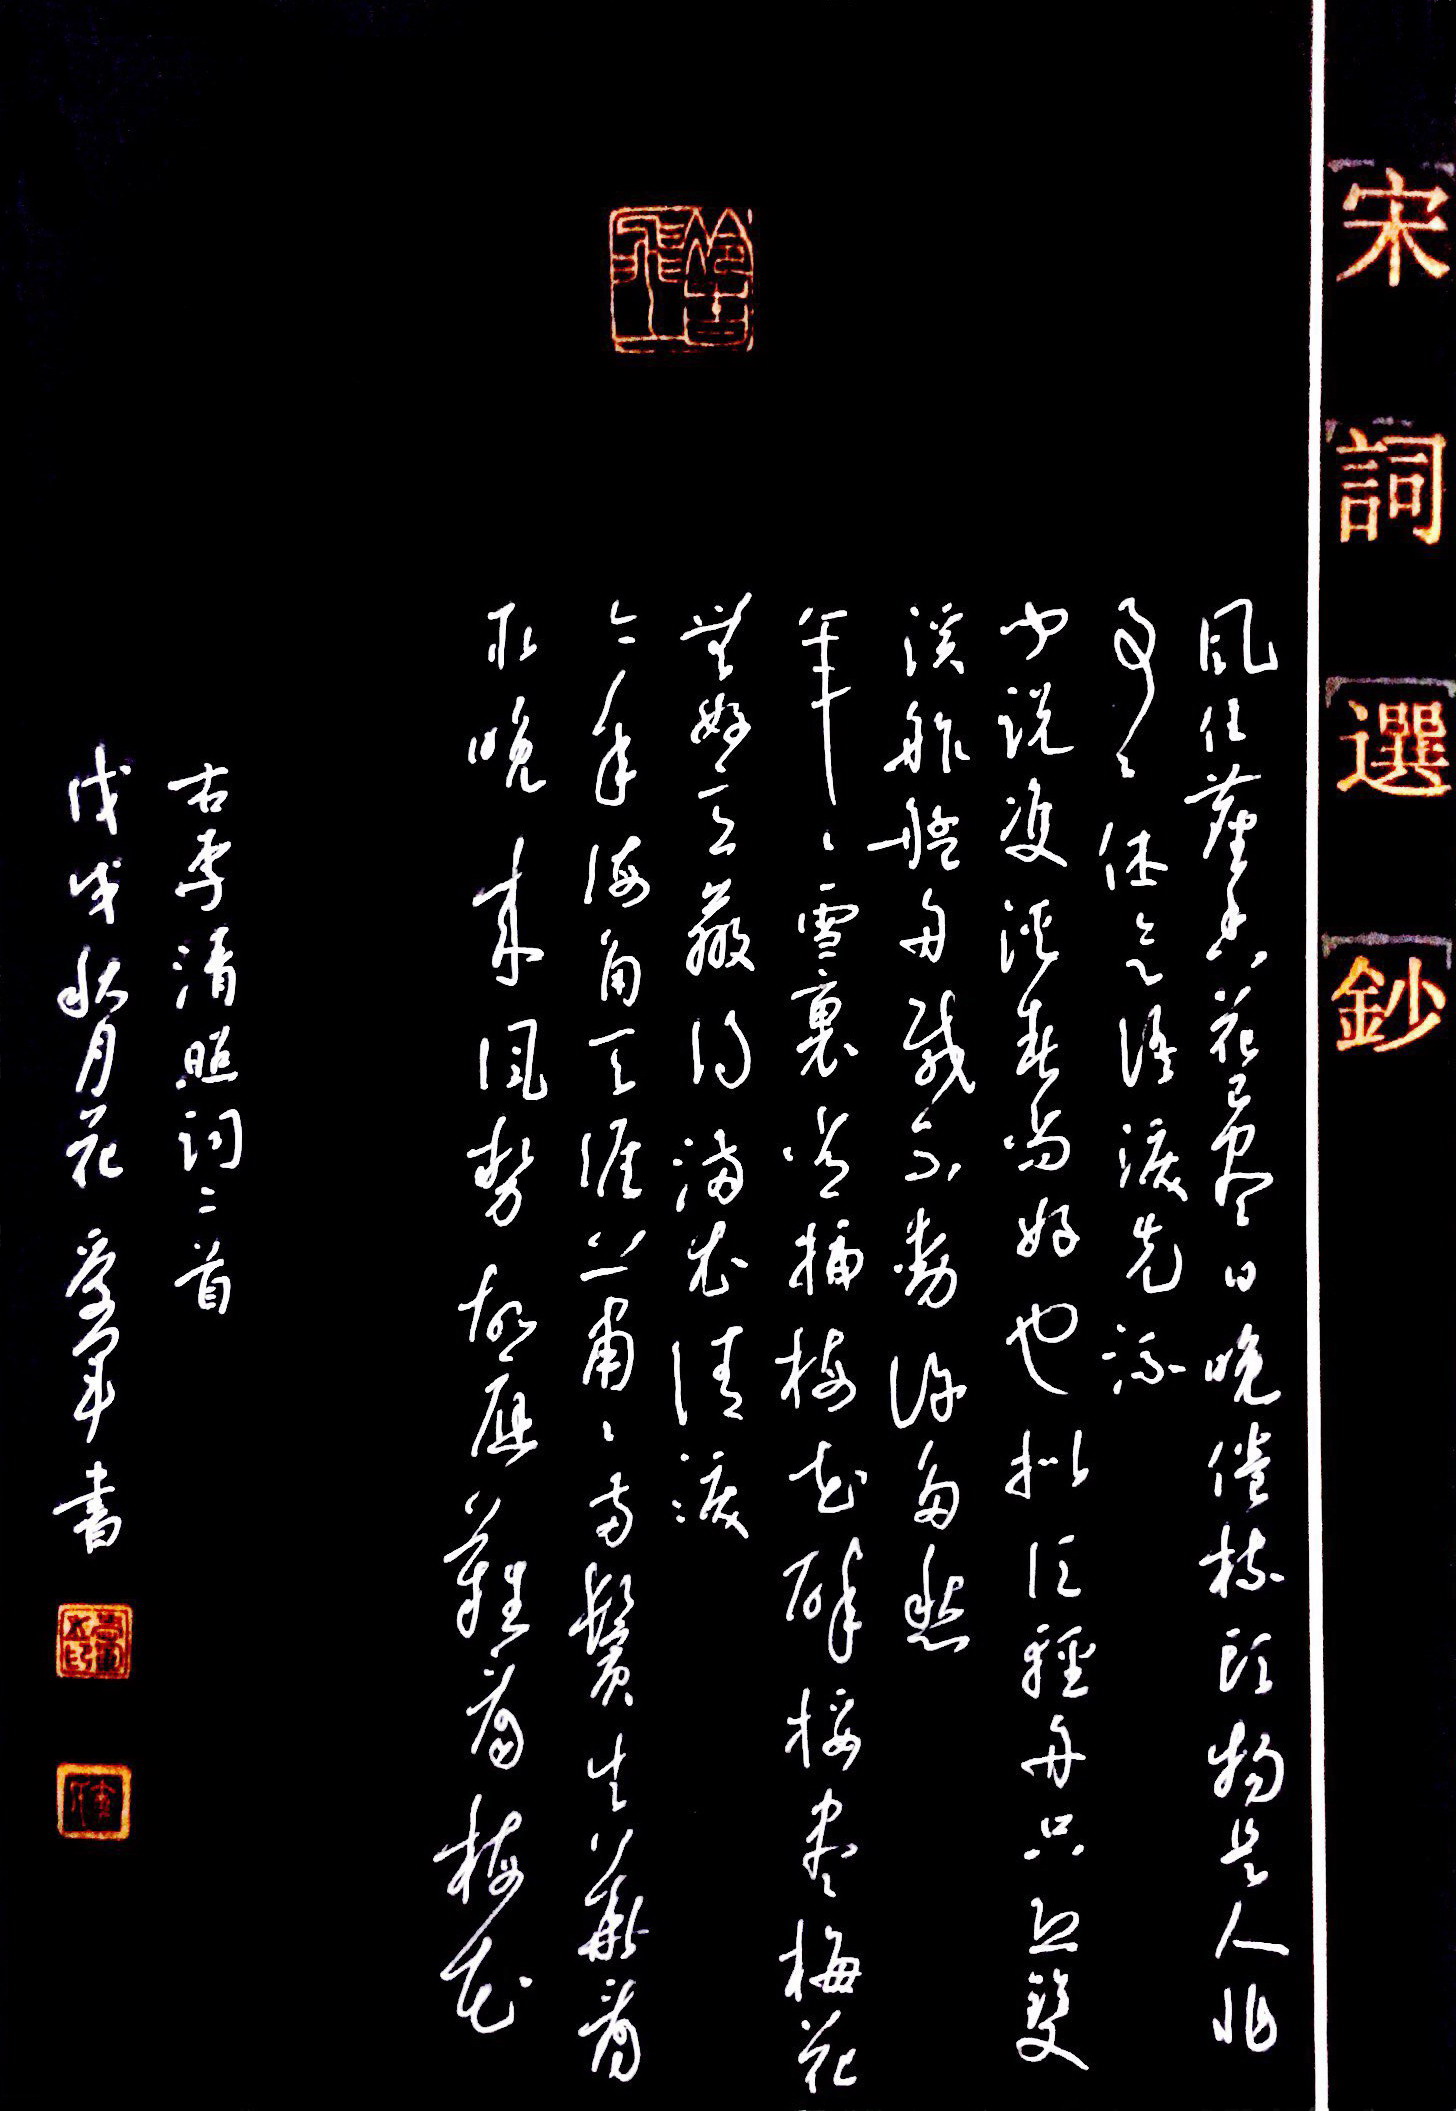 宋詞選鈔
風住塵香花已尽日晚倦梳頭物是人非
事〻休欲語淚先流
聞説雙溪春尚好也擬泛輕舟只恐雙
溪舴艋舟載不動許多愁
年〻雪裏常插梅花醉挼盡梅花
無好意贏得滿衣清淚
今年海角天涯蕭〻兩鬢生華看
取晚來風勢故應難看梅花
右李清照詞二首
戊戌秋月 書